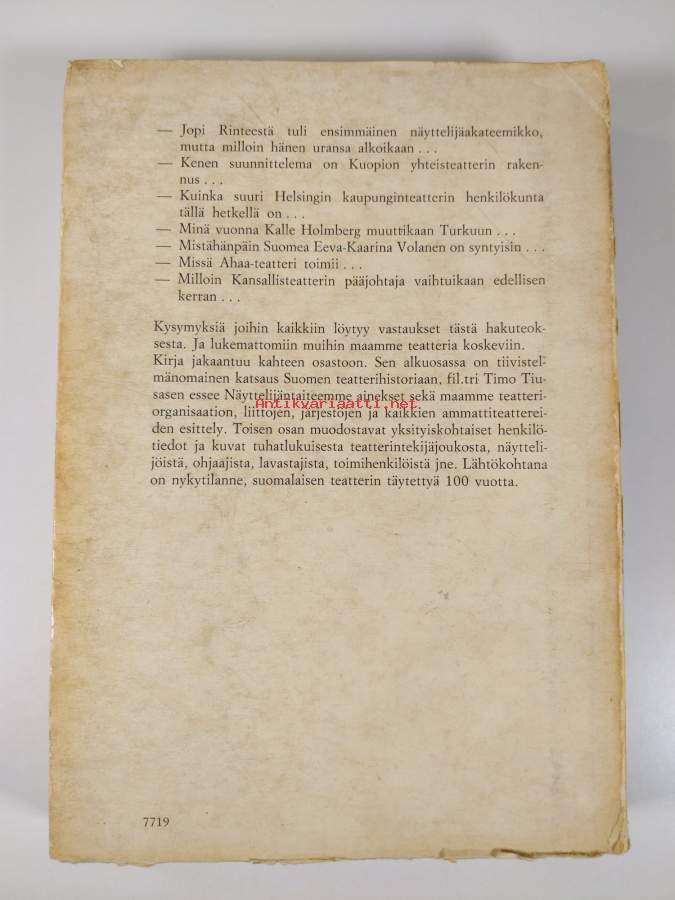 — Jopi Rinteestä tuli ensimmäinen näyttelijäakateemikko,
mutta milloin hänen uransa alkoikaan . . .
— Kenen suunnittelema on Kuopion yhteisteatterin raken-
nus . . .
— Kuinka suuri Helsingin kaupunginteatterin henkilökunta
tällä hetkellä on . . .
— Minä vuonna Kalle Holmberg muuttikaan Turkuun . . .
— Mistähänpäin Suomea Eeva-Kaarina Volanen on syntyisin . . .
— Missä Ahaa-teatteri toimii . . .
— Milloin Kansallisteatterin pääjohtaja vaihtuikaan edellisen
kerran . . .
Kysymyksiä joihin kaikkiin löytyy vastaukset tästä hakuteok-
sesta. Ja lukemattomiin muihin maamme teatteria koskeviin.
Kirja jakaantuu kahteen osastoon. Sen alkuosassa on tiivistel-
mänomainen katsaus Suomen teatterihistoriaan, fil.tri Timo Tiu-
sasen essee Näyttelijäntaiteemme ainekset sekä maamme teatteri-
organisaation, liittojen, järjestöjen ja kaikkien ammattiteattereiden
den esittely. Toisen osan muodostavat yksityiskohtaiset henkilö-
tiedot ja kuvat tuhatlukuisesta teatterintekijäjoukosta, näytteli-
jöistä, ohjaajista, lavastajista, toimihenkilöistä jne. Lähtökohtana
on nykytilanne, suomalaisen teatterin täytettyä 100 vuotta.
Antikvariaatti.net
7719